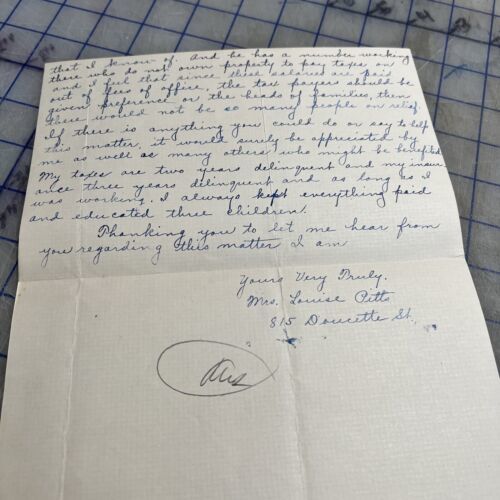 that I know of. And he has a number working
there who do not own property to pay taxes on
and I feel that since these salaries are paid
out of fees of office, the tax payers should be
given preference or the heads of families, then
there would not be so many people on relief.
If there is anything you could do or say to help
this matter, it would surely be appreciated by
me as well as many others who might be benefited
My taxes are two years delinquent and my insur
ance three years delinquent and as long as I
was working, I always kept everything paid
and educated three children.
Thanking you to let me hear from
you regarding this matter I am
Yours Very Truly.
Mrs. Louise Pitts
815 Doucette St.